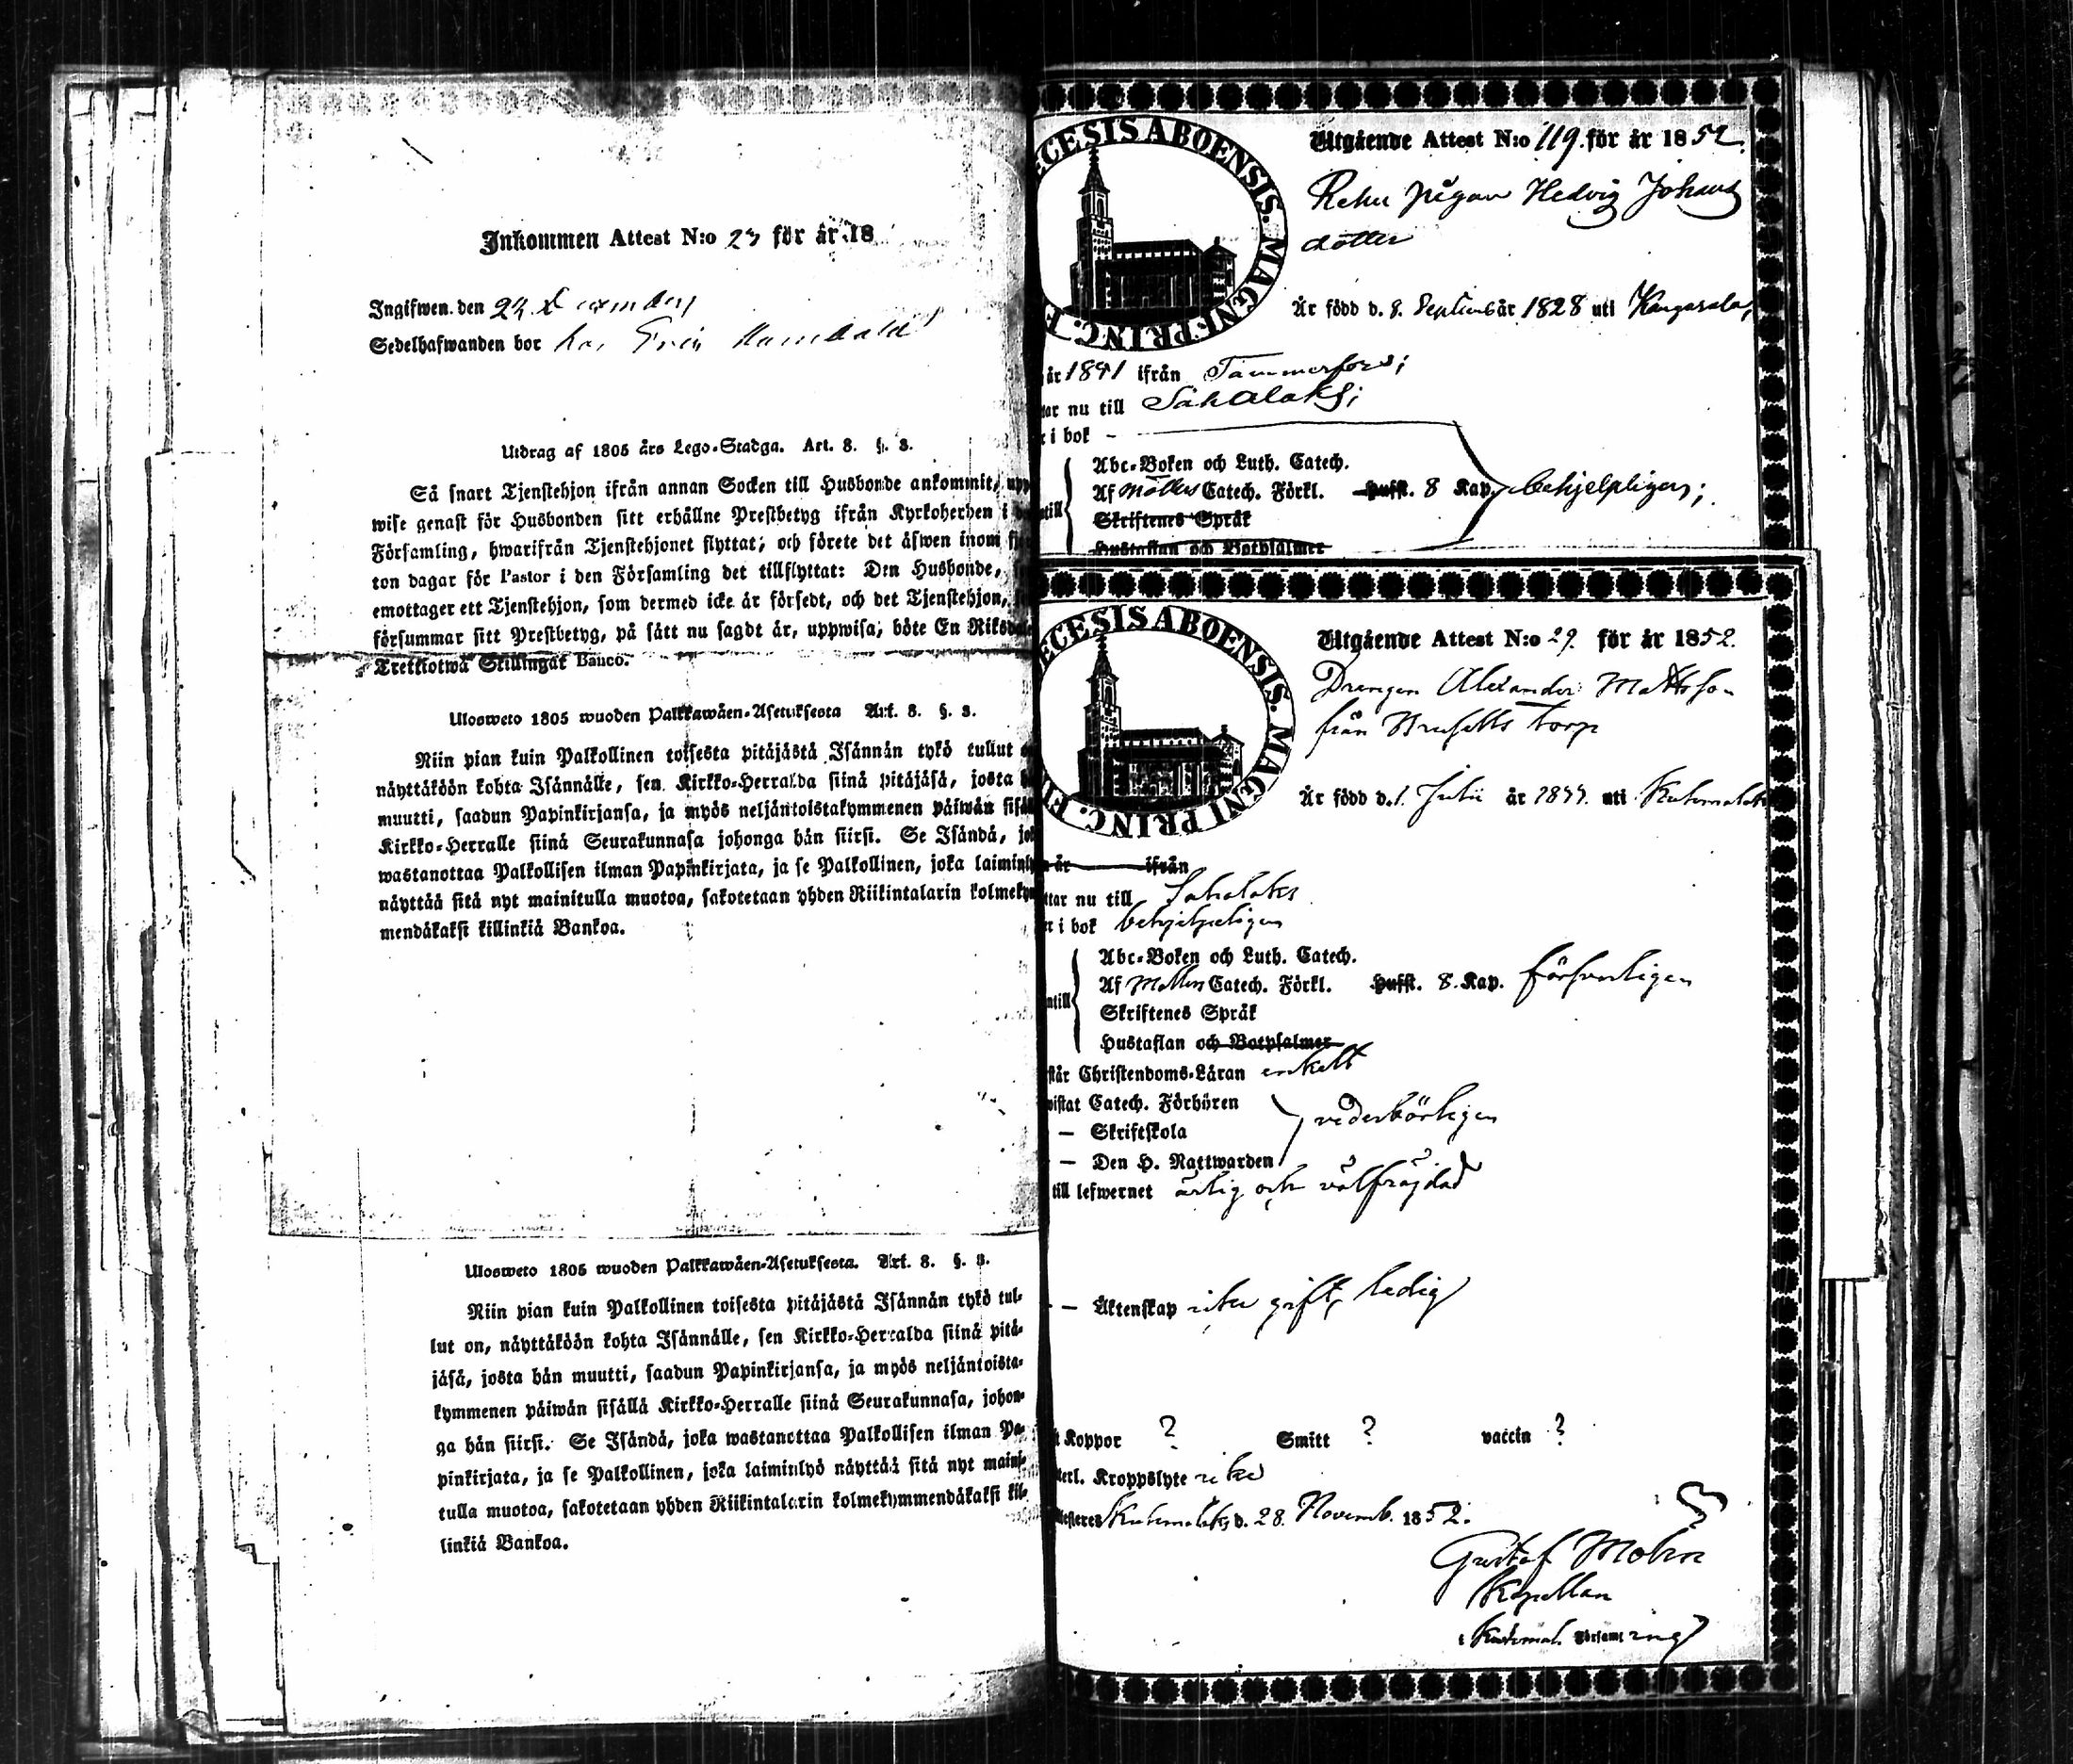 Inkommen Attest N:o 23 för år 18
Ingifwen den 22 December
Sedelhafwanden bor hos
Utdrag af 1805 års Lego-Stadga. Art. 8. §. 3.
Så snart Tjenstehjon ifrån annan Socken till Husbonde ankommit, upp
wise genast för Husbonden sitt erhållne Prestbetyg ifrån Kyrkoherden i
Församling, hwarifrån Tjenstehjonet flyttat; och förete det äfwen inom
ton dagar för Pastor i den Församling det tillflyttat: Den Husbonde,
emottager ett Tjenstehjon, som dermed icke är försedt, och det Tjenstehjon,
försummar sitt Prestbetyg, på sätt nu sagdt är, uppwisa, böte En Riksdaler
Trettiotwå Skillingar Banco.
Ulosweto 1805 wuoden Palkkawäen-Asetuksesta Art. 8. §. 3.
Niin pian kuin Palkollinen toisesta pitäjästä Isännän tykö tullut
näyttäköön kohta Isännälle, sen Kirkko-Herralda siinä pitäjäsä, josta
muutti, saadun Papinkirjansa, ja myös neljäntoistakymmenen päiwän sisäl
Kirkko-Herralle siinä Seurakunnasa johonga hän siirsi. Se Isändä, jo
wastanottaa Palkollisen ilman Papinkirjata, ja se Palkollinen, joka laiminly
näyttää sitä nyt mainitulla muotoa, sakotetaan yhden Riikintalarin kolmeky
mendäkaksi killinkiä Bankoa.
Ulosweto 1805 wuoden Palkkawäen-Asetuksesta. Art. 8. §. 3.
Niin pian kuin Palkollinen toisesta pitäjästä Isännän tykö tul-
lut on, näyttäköön kohta Isännälle, sen Kirkko-Herralda siinä pitä-
jäsä, josta hän muutti, saadun Papinkirjansa, ja myös neljäntoista-
kymmenen päiwän sisällä Kirkko-Herralle siinä Seurakunnasa, johon-
ga hän siirsi. Se Isändä, joka wastanottaa Palkollisen ilman Pa-
pinkirjata, ja se Palkollinen, joka laiminlyö näyttää sitä nyt maini-
tulla muotoa, sakotetaan yhden Riikintalarin kolmekymmendäkaksi kil-
linkiä Bankoa.
ECESIS ABOENSIS. MAGNI PRINC. F
Utgående Attest N:o 119 för år 1852.
pigan Hedvig Johans
dotter
Är född d. 8. Septemb år 1828 uti Kangasala,
år 1841 ifrån Tammerfors;
tar nu till Sahalaks;
i bok
Abc-Boken och Luth. Catech.
Af Möllers Catech. Förkl. Hufst. 8 Kap. behjelpligen;
ntill
Skriftenes Språk
Hustaflan och Botpsalmer
ECESIS ABOENSIS. MAGNI PRINC. FI
Utgående Attest N:o 29. för år 1852.
Drengen Alexander Mattsson
från torp
Är född d. 1. Julii år uti Kuhmalaks
år ifrån
ttar nu till Sahalaks
i bok behjelpeligen
Abc-Boken och Luth. Catech.
Af Möllers Catech. Förkl. Hufst. 8. Kap. försvarligen
ntill
Skriftenes Språk
Hustaflan och Botpsalmer
står Christendoms-Läran enkelt
wistat Catech. Förhören
— Skriftskola vederbörligen
— Den H. Nattwarden
till lefwernet ärlig och välfräjdad
— Äktenskap icke gift, ledig
Koppor ? Smitt ? vaccin ?
terl. Kroppslyte icke
ttesteres Kuhmalaks d. 28. Novemb. 1852.
Gustaf Molin
Kapellan
i Kuhmal. Församling